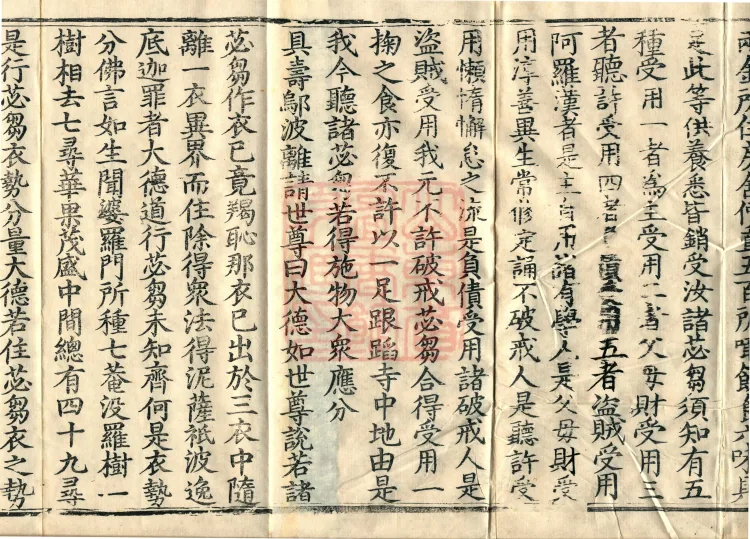 是此等供養悉皆銷受汝諸苾芻須知有五
種受用一者為主受用二者父母財受用三
者聽許受用四者負債受用五者盜賊受用
阿羅漢者是主自所諸有學人是父母財受
用淳善異生常修定誦不破戒人是聽許受
用懶惰懈怠之流是負債受用諸破戒人是
盜賊受用我元不許破戒苾芻合得受用一
掬之食亦復不許以一足跟蹈寺中地由是
我今聽諸苾芻若得施物大衆應分
具壽鄔波離請世尊曰大德如世尊說若諸
苾芻作衣已竟羯恥那衣已出於三衣中隨
離一衣異界而住除得衆法得泥薩祇波逸
底迦罪者大德道行苾芻未知齊何是衣勢
分佛言如生聞婆羅門所種七菴没羅樹一
樹相去七尋華果茂盛中間總有四十九尋
是行苾芻衣勢分量大德若住苾芻衣之勢